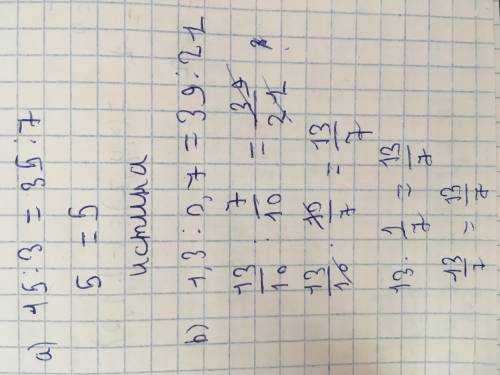 a) 15:3 = 35:7
5 = 5
истина
b) 1,3:0,7 = 39:21
13/10 : 7/10 = 39/21
13/10 · 10/7 = 13/7
13 · 1/7 = 13/7
13/7 = 13/7